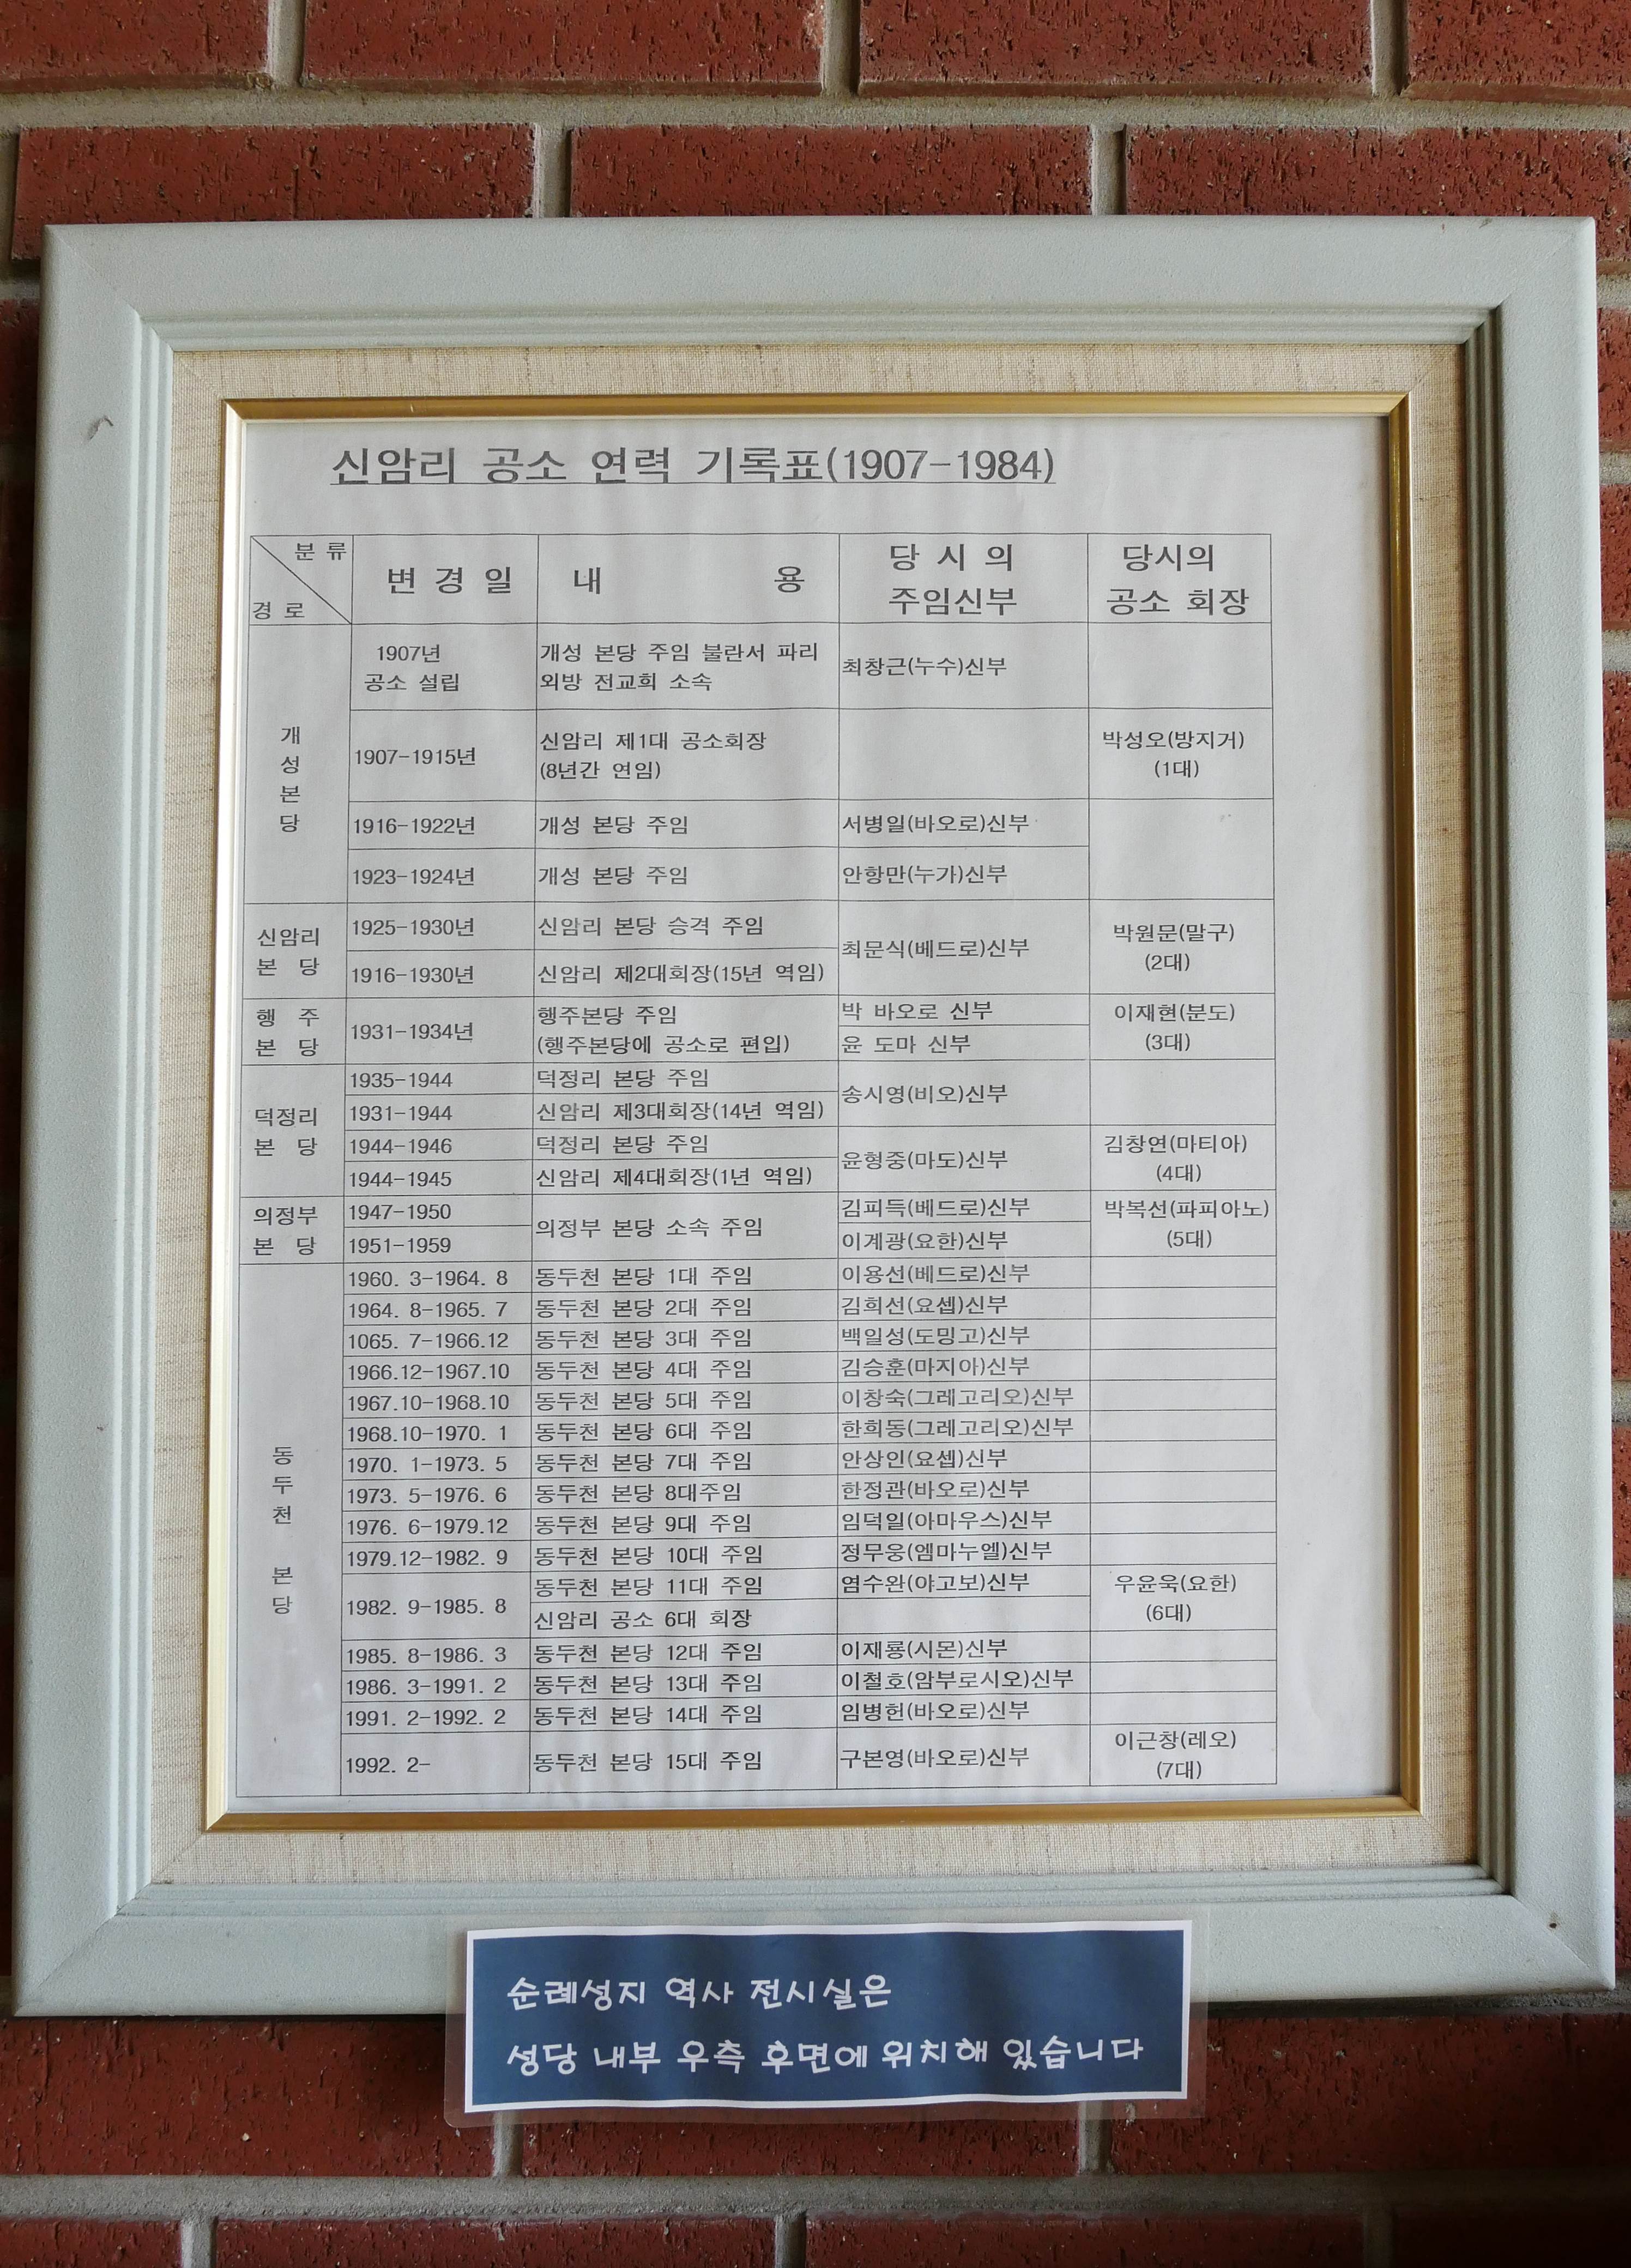 신암리 공소 연력 기록표(1907-1984)
분 류
경 로
변 경 일
내 용
당 시 의
주임신부
당시의
공소 회장
개
성
본
당
1907년
공소 설립
개성 본당 주임 불란서 파리
외방 전교회 소속
최창근(누수)신부
1907-1915년
신암리 제1대 공소회장
(8년간 연임)
박성오(방지거)
(1대)
1916-1922년
개성 본당 주임
서병일(바오로)신부
1923-1924년
개성 본당 주임
안항만(누가)신부
신암리
본 당
1925-1930년
신암리 본당 승격 주임
최문식(베드로)신부
박원문(말구)
(2대)
1916-1930년
신암리 제2대회장(15년 역임)
행 주
본 당
1931-1934년
행주본당 주임
(행주본당에 공소로 편입)
박 바오로 신부
윤 도마 신부
이재현(분도)
(3대)
덕정리
본 당
1935-1944
덕정리 본당 주임
송시영(비오)신부
1931-1944
신암리 제3대회장(14년 역임)
1944-1946
덕정리 본당 주임
윤형중(마도)신부
김창연(마티아)
(4대)
1944-1945
신암리 제4대회장(1년 역임)
의정부
본 당
1947-1950
의정부 본당 소속 주임
김피득(베드로)신부
박복선(파피아노)
(5대)
1951-1959
이계광(요한)신부
동
두
천
본
당
1960. 3-1964. 8
동두천 본당 1대 주임
이용선(베드로)신부
1964. 8-1965. 7
동두천 본당 2대 주임
김희선(요셉)신부
1065. 7-1966.12
동두천 본당 3대 주임
백일성(도밍고)신부
1966.12-1967.10
동두천 본당 4대 주임
김승훈(마지아)신부
1967.10-1968.10
동두천 본당 5대 주임
이창숙(그레고리오)신부
1968.10-1970. 1
동두천 본당 6대 주임
한희동(그레고리오)신부
1970. 1-1973. 5
동두천 본당 7대 주임
안상인(요셉)신부
1973. 5-1976. 6
동두천 본당 8대주임
한정관(바오로)신부
1976. 6-1979.12
동두천 본당 9대 주임
임덕일(아마우스)신부
1979.12-1982. 9
동두천 본당 10대 주임
정무웅(엠마누엘)신부
1982. 9-1985. 8
동두천 본당 11대 주임
염수완(야고보)신부
우윤욱(요한)
(6대)
신암리 공소 6대 회장
1985. 8-1986. 3
동두천 본당 12대 주임
이재룡(시몬)신부
1986. 3-1991. 2
동두천 본당 13대 주임
이철호(암부로시오)신부
1991. 2-1992. 2
동두천 본당 14대 주임
임병헌(바오로)신부
1992. 2-
동두천 본당 15대 주임
구본영(바오로)신부
이근창(레오)
(7대)
순례성지 역사 전시실은
성당 내부 우측 후면에 위치해 있습니다